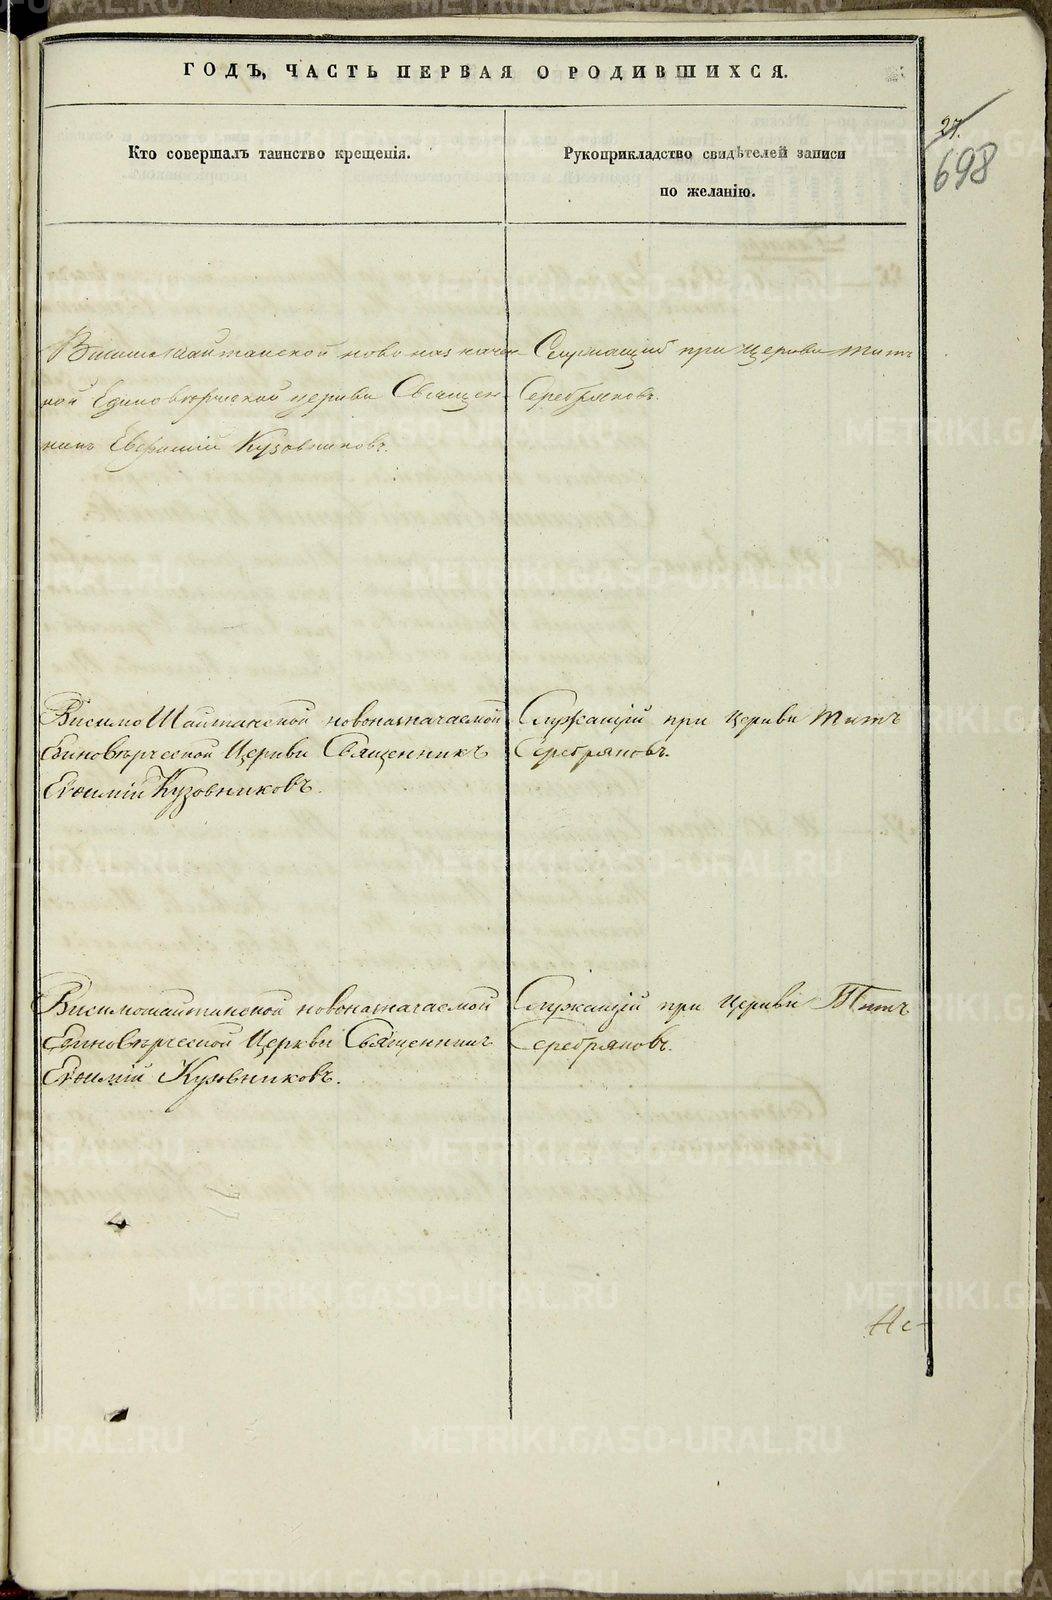 ГОДЪ, ЧАСТЬ ПЕРВАЯ О РОДИВШИХСЯ.
27.
698
Кто совершалъ таинство крещенія.
Рукоприкладство свидѣтелей записи
по желанію.
Висимошайтанской новоназначен-
ной Единовѣрческой церкви Священ-
никъ Евфимій Кузовниковъ.
Служащій при церкви Титъ
Серебряковъ.
Висимо Шайтанской новоназначаемой
Единовѣрческой Церкви Священникъ
Евѳимій Кузовниковъ.
Служащій при церкви Титъ
Серебряковъ.
Висимошайтанской новоназначаемой
Единовѣрческой Церкви Священникъ
Евѳимій Кузовниковъ.
Служащій при церкви Титъ
Серебряковъ.
METRIKI.GASO-URAL.RU